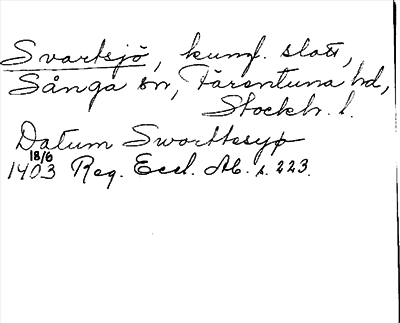 Svartsjö, kungl. slott,
Sånga sn, Färentuna hd,
Stockh. l.
Datum Sworttesyø
18/6
1403 Reg. Eccl. Ab. s. 223.